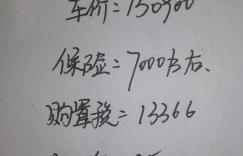 车价=150900
保险=7000左右、
购置税=13366